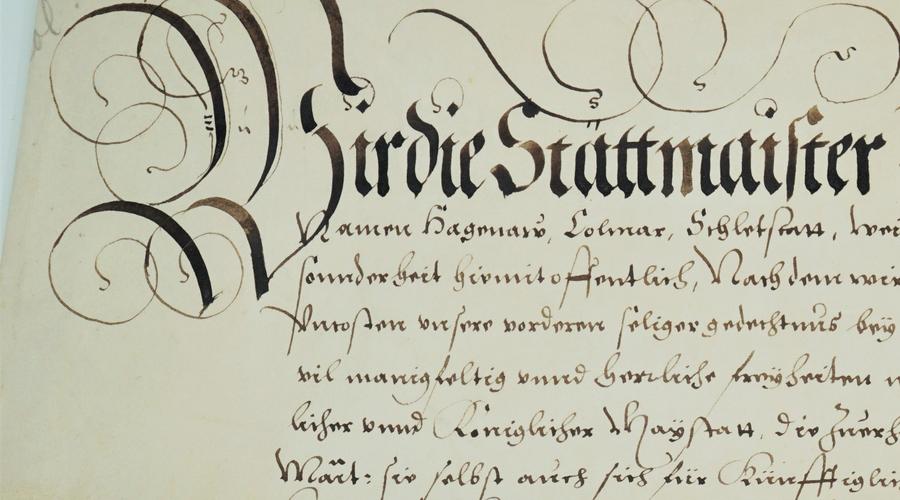 Wir die Stättmaister
Namen Hagenaw, Colmar, Schletstatt, wei
sonnderheit hiemit offentlich, Nachdem wir
Vncosten vnsere vorderen seliger gedechtnüs bey
vil manigfeltig vnnd herrliche freyheiten
licher vnnd Königlicher Mayestatt, die
Mät: sie selbst auch sich für Künfftiglich